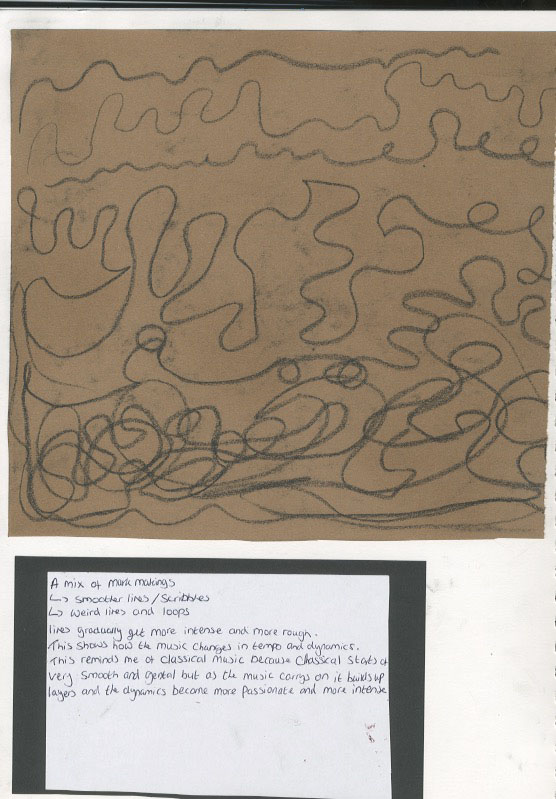 A mix of mark makings
↳ smoother lines / scribbles
↳ weird lines and loops
lines gradually get more intense and more rough.
This shows how the music changes in tempo and dynamics.
This reminds me of classical music because classical starts of
very smooth and gental but as the music carrys on it builds up
layers and the dynamics become more passionate and more intense.